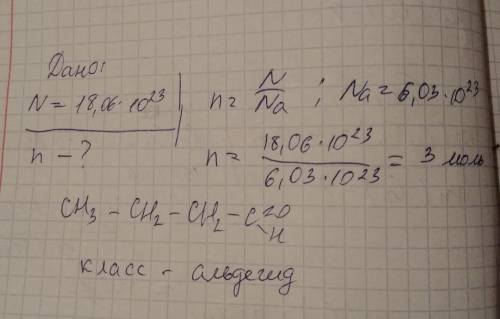 Дано:
N = 18,06·10²³
n - ?
n = N/Na ; Na = 6,03·10²³
n = 18,06·10²³/6,03·10²³ = 3 моль
CH₃ - CH₂ - CH₂ - C=O
H
класс - альдегид